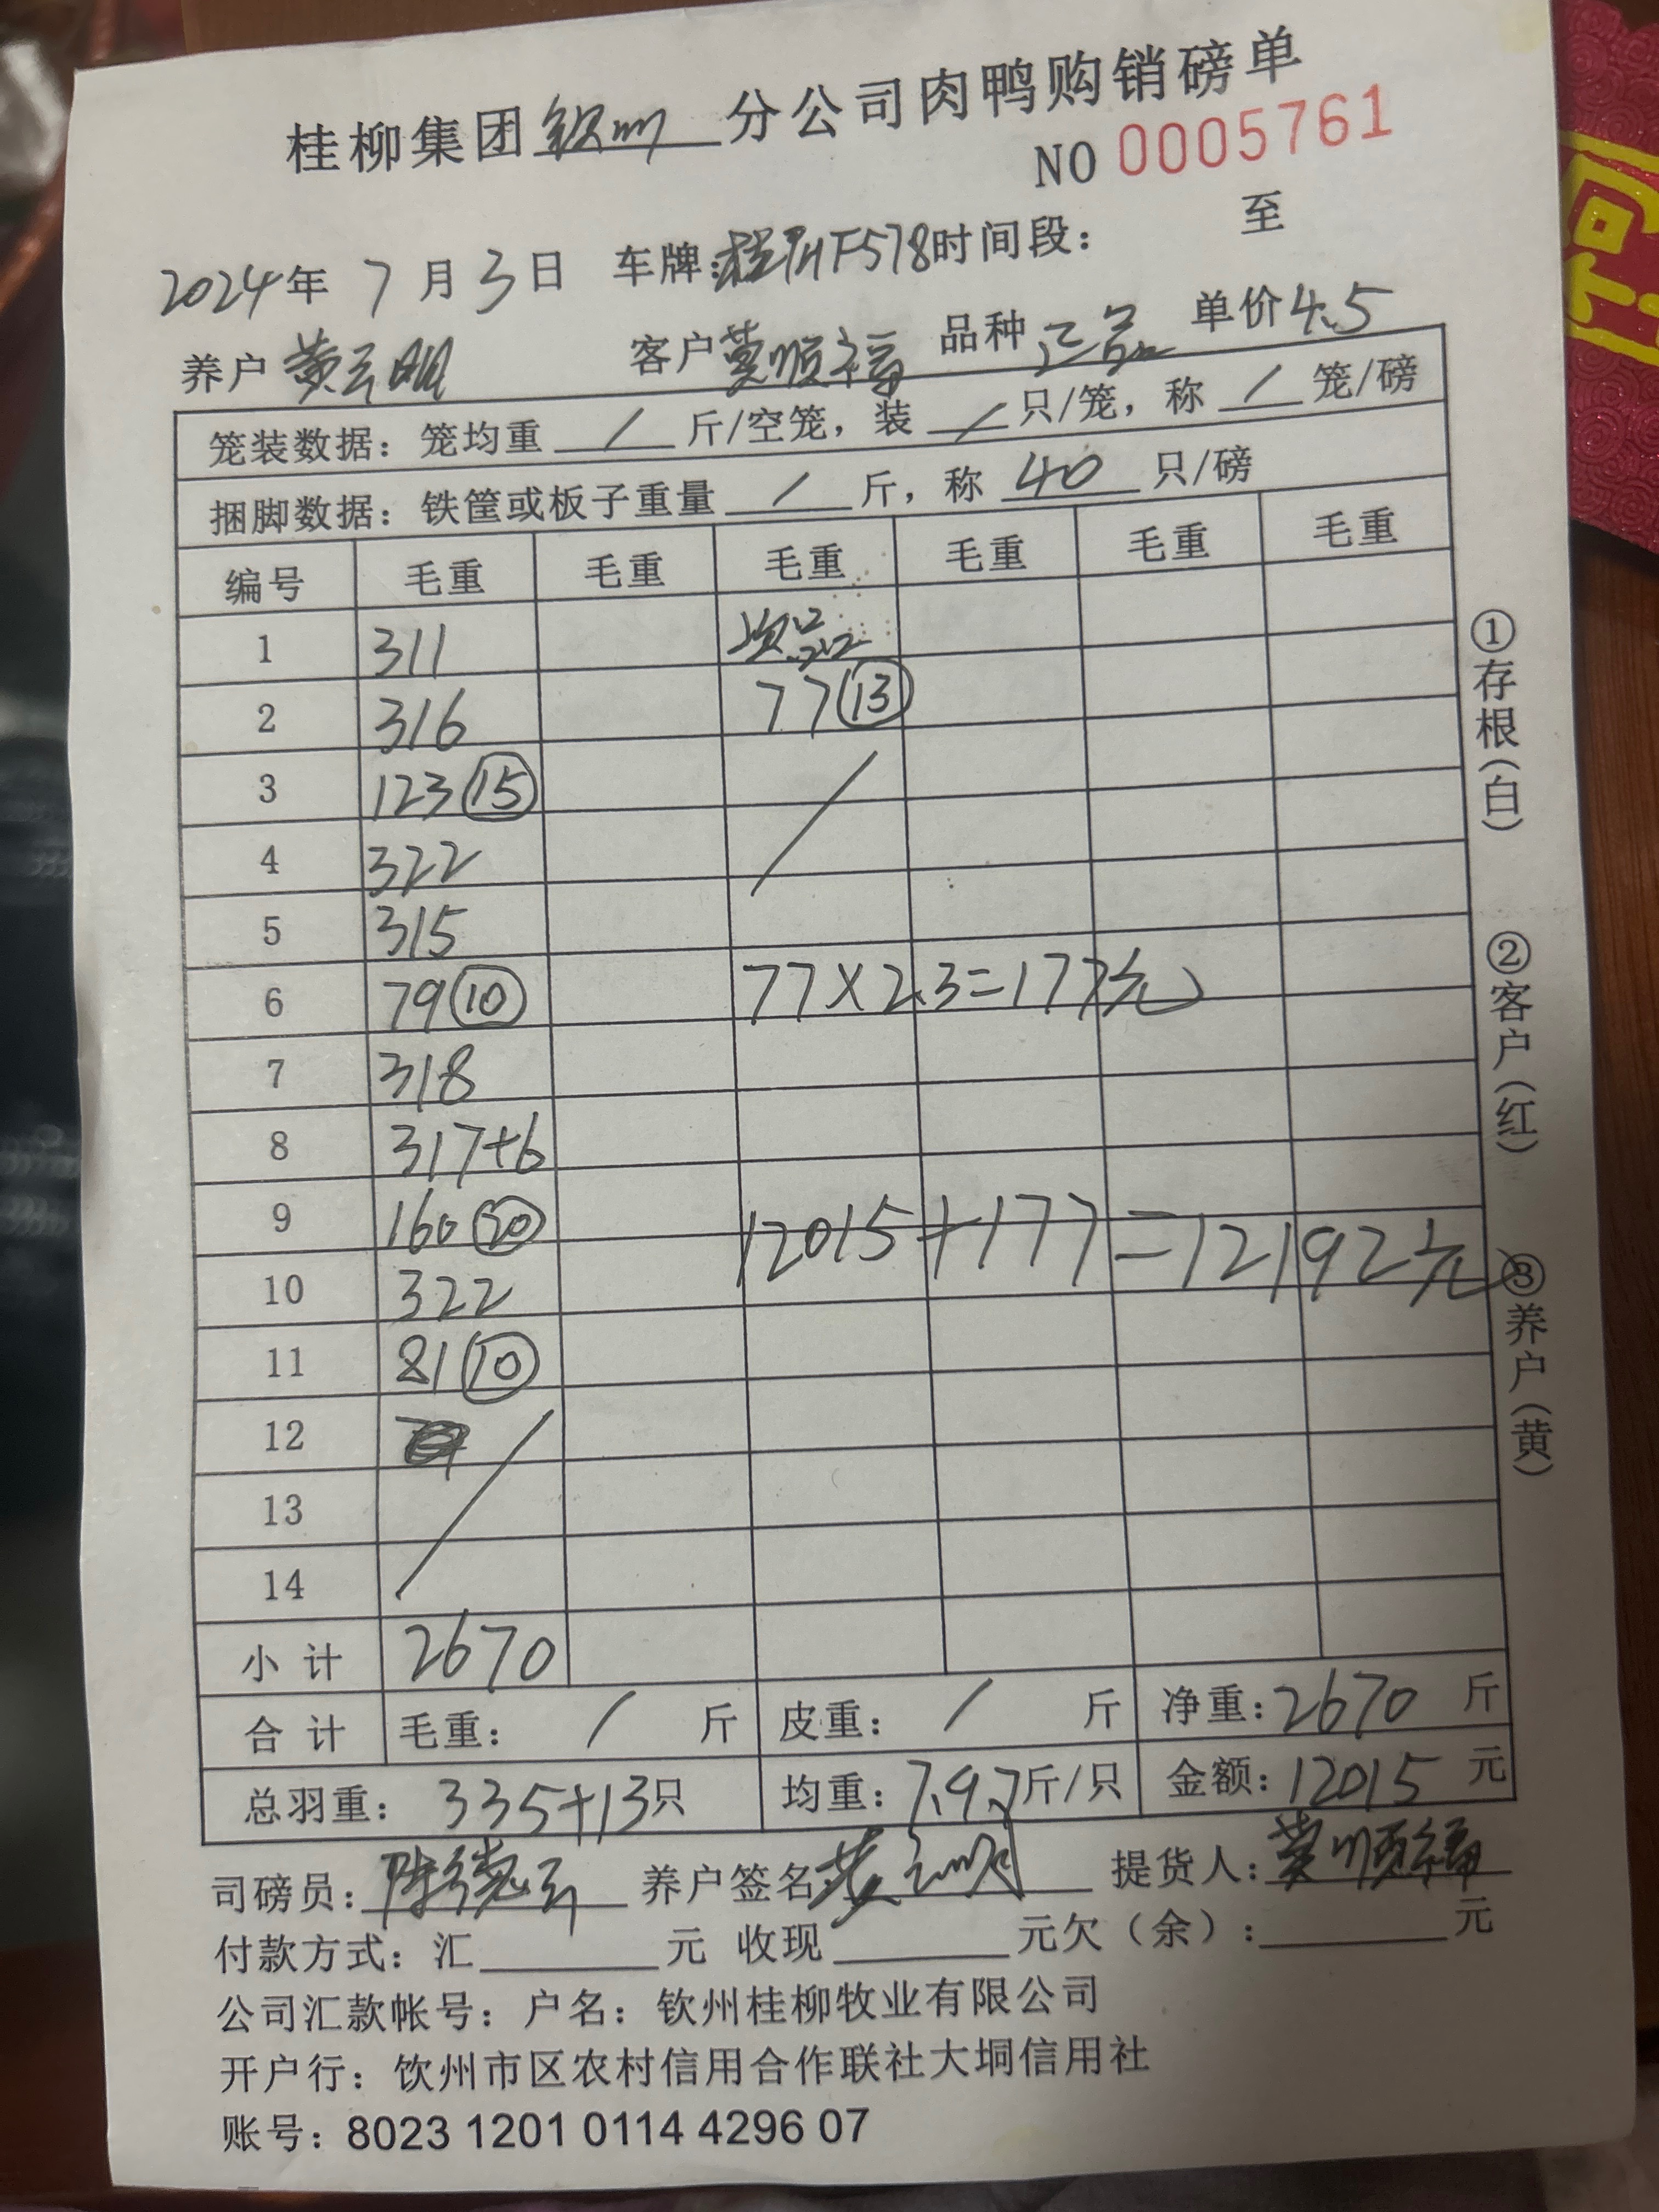 桂柳集团钦州分公司肉鸭购销磅单
NO 0005761
2024年 7月3日 车牌:桂 F578时间段: 至
养户 黄云明 客户 莫顺福 品种 正品 单价 4.5
笼装数据: 笼均重 / 斤/空笼, 装 / 只/笼, 称 / 笼/磅
捆脚数据: 铁筐或板子重量 / 斤, 称 40 只/磅
编号 毛重 毛重 毛重 毛重 毛重 毛重
1 311 次品
2 316 77⑬
3 123⑮ /
4 322
5 315
6 79⑩ 77×2.3=177元
7 318
8 317+6
9 160⑳ 12015+177=12192元
10 322
11 81⑩
12
13 /
14
小计 2670
合计 毛重: / 斤 皮重: / 斤 净重: 2670 斤
总羽重: 335+13只 均重: 7.97斤/只 金额: 12015 元
司磅员: 陈德云 养户签名: 黄云明 提货人: 莫顺福
付款方式: 汇 元 收现 元欠(余): 元
公司汇款帐号: 户名: 钦州桂柳牧业有限公司
开户行: 钦州市区农村信用合作联社大垌信用社
账号: 8023 1201 0114 4296 07
①存根(白) ②客户(红) ③养户(黄)